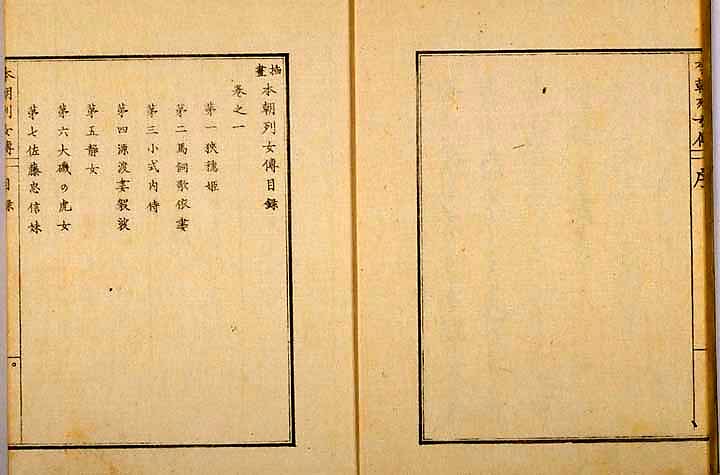 本朝列女傳 序
挿畫 本朝列女傳目錄
卷之一
第一狹穗姬
第二馬詞歌依妻
第三小式內侍
第四源渡妻袈裟
第五靜女
第六大磯の虎女
第七佐藤忠信妹
本朝列女傳 目錄